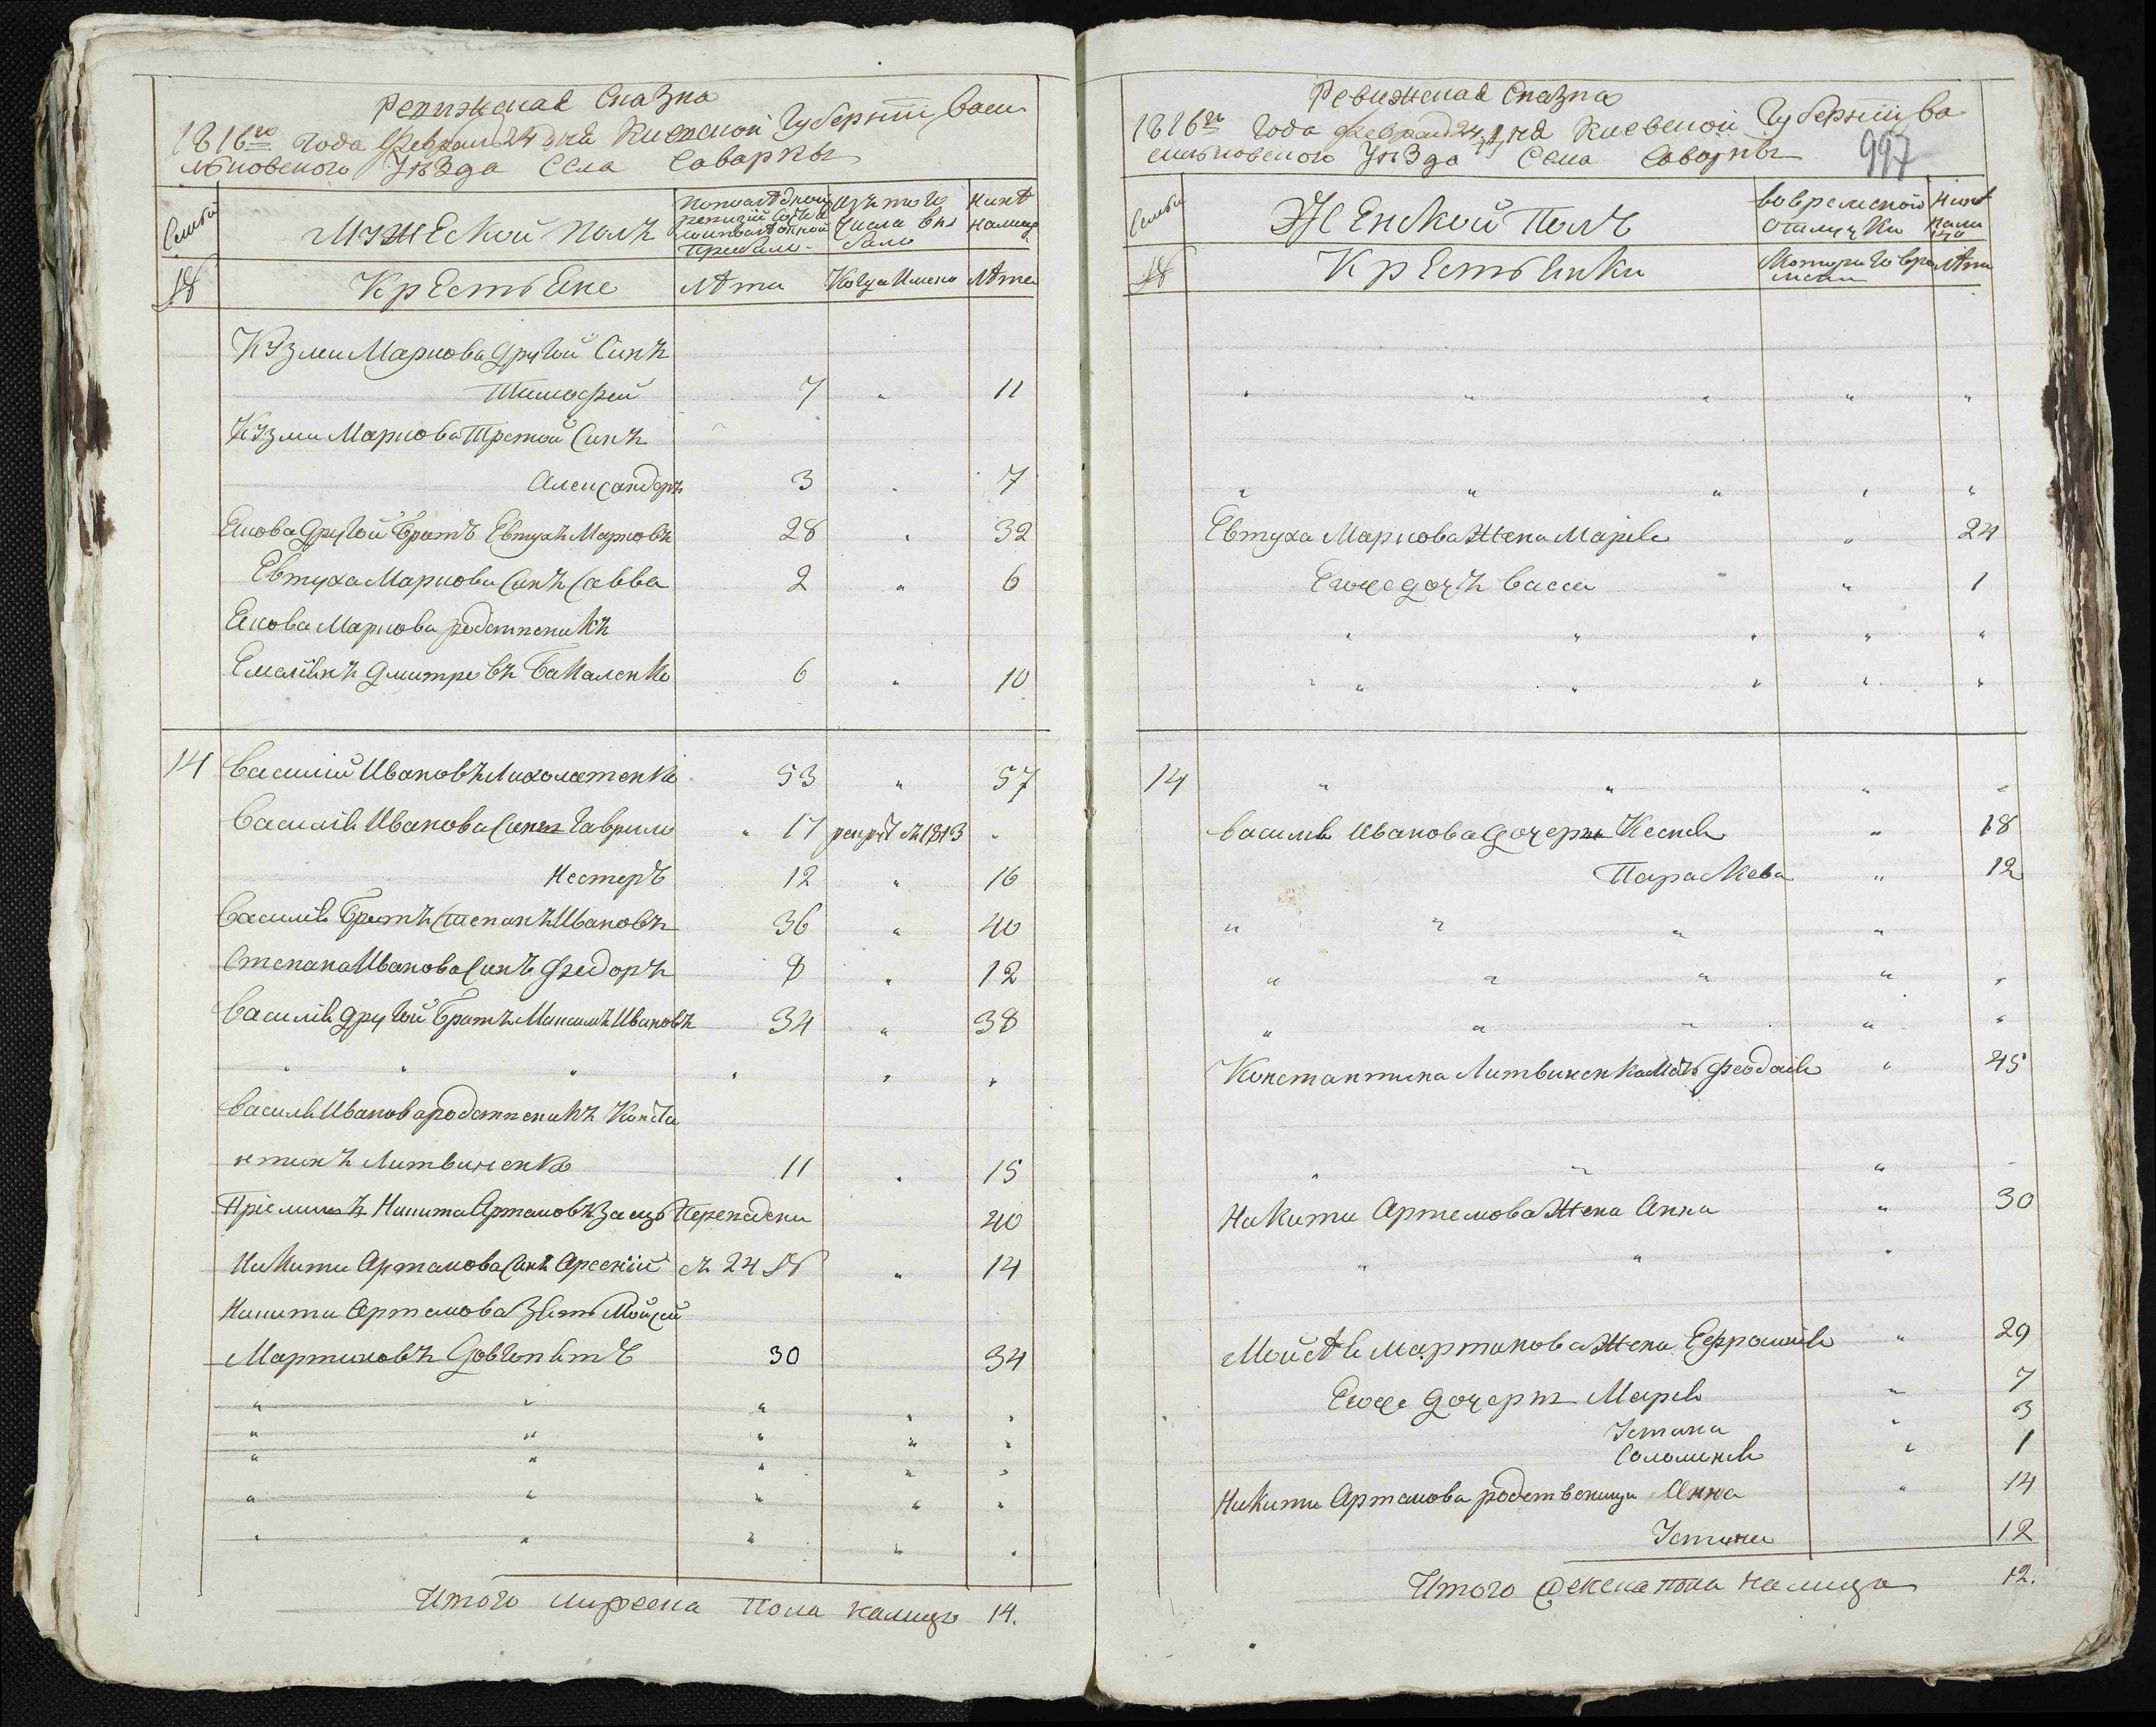 Ревижская Сказка
1816го Года Февраля 24 дня Киевской Губернии Васи
льковского Уѣзда Села Саварки
Семьи
Мужеской полъ
По последней ревизии состояло и после оной прибыло
Изъ того числа выбыло
Ныне налицо
№
Крестьяне
Лѣта
Когда имено
Лѣта
Кузми Маркова другой Синъ
Тимофей 7 " 11
Кузми Маркова Третой Синъ
Александоръ 3 " 7
Якова другой братъ Евтухъ Марковъ 28 " 32
Евтуха Маркова Синъ Савва 2 " 6
Якова Маркова родственикъ
Емелянъ Дмитревъ Бакаленко 6 " 10
14 Василий Ивановъ Лихолатенко 53 " 57
Василия Иванова Синъ Гаврило 17 рекрутъ 1813 "
Нестеръ 12 " 16
Василия братъ Степанъ Ивановъ 36 " 40
Степана Иванова Синъ Федоръ 8 " 12
Василия другой братъ Максимъ Ивановъ 34 " 38
" " " " " "
Василя Иванова родственикъ Конста
нтинъ Литвиненко 11 " 15
Приемишъ Никита Артемовъ Заецъ Переведени 40
Никити Артемова Синъ Арсений съ 24 № " 14
Никити Артемова Зять Мойсей
Мартиновъ Довгопятъ 30 34
" " " " "
" " " " "
" " " " "
" " " " "
" " " " "
Итого мужеска пола налицо 14.
Ревижская Сказка
1816го Года Февраля 24 дня Киевской Губернии Ва
сильковского Уѣзда Села Саварки
997
Семьи
Женской Полъ
Во временной отлучки
Ныне налицо
№
Крестьянки
Которого времени
Лѣта
" " " " "
" " " " "
Евтуха Маркова Жена Мария " 24
Егоже дочъ Васса " 1
" " " " "
" " " " "
14 " " " "
Василия Иванова дочери Ксения " 18
Параскева " 12
" " " "
" " " " "
" " " " "
Константина Литвиненка Мать Феодосия " 45
" " " "
Никити Артемова Жена Анна " 30
" " "
Мойсѣя Мартинова Жена Ефросиния " 29
Егоже дочери Мария " 7
Устина " 3
Соломия " 1
Никити Артемова родствениця Анна " 14
Устина 12
Итого женска пола налицо 12.